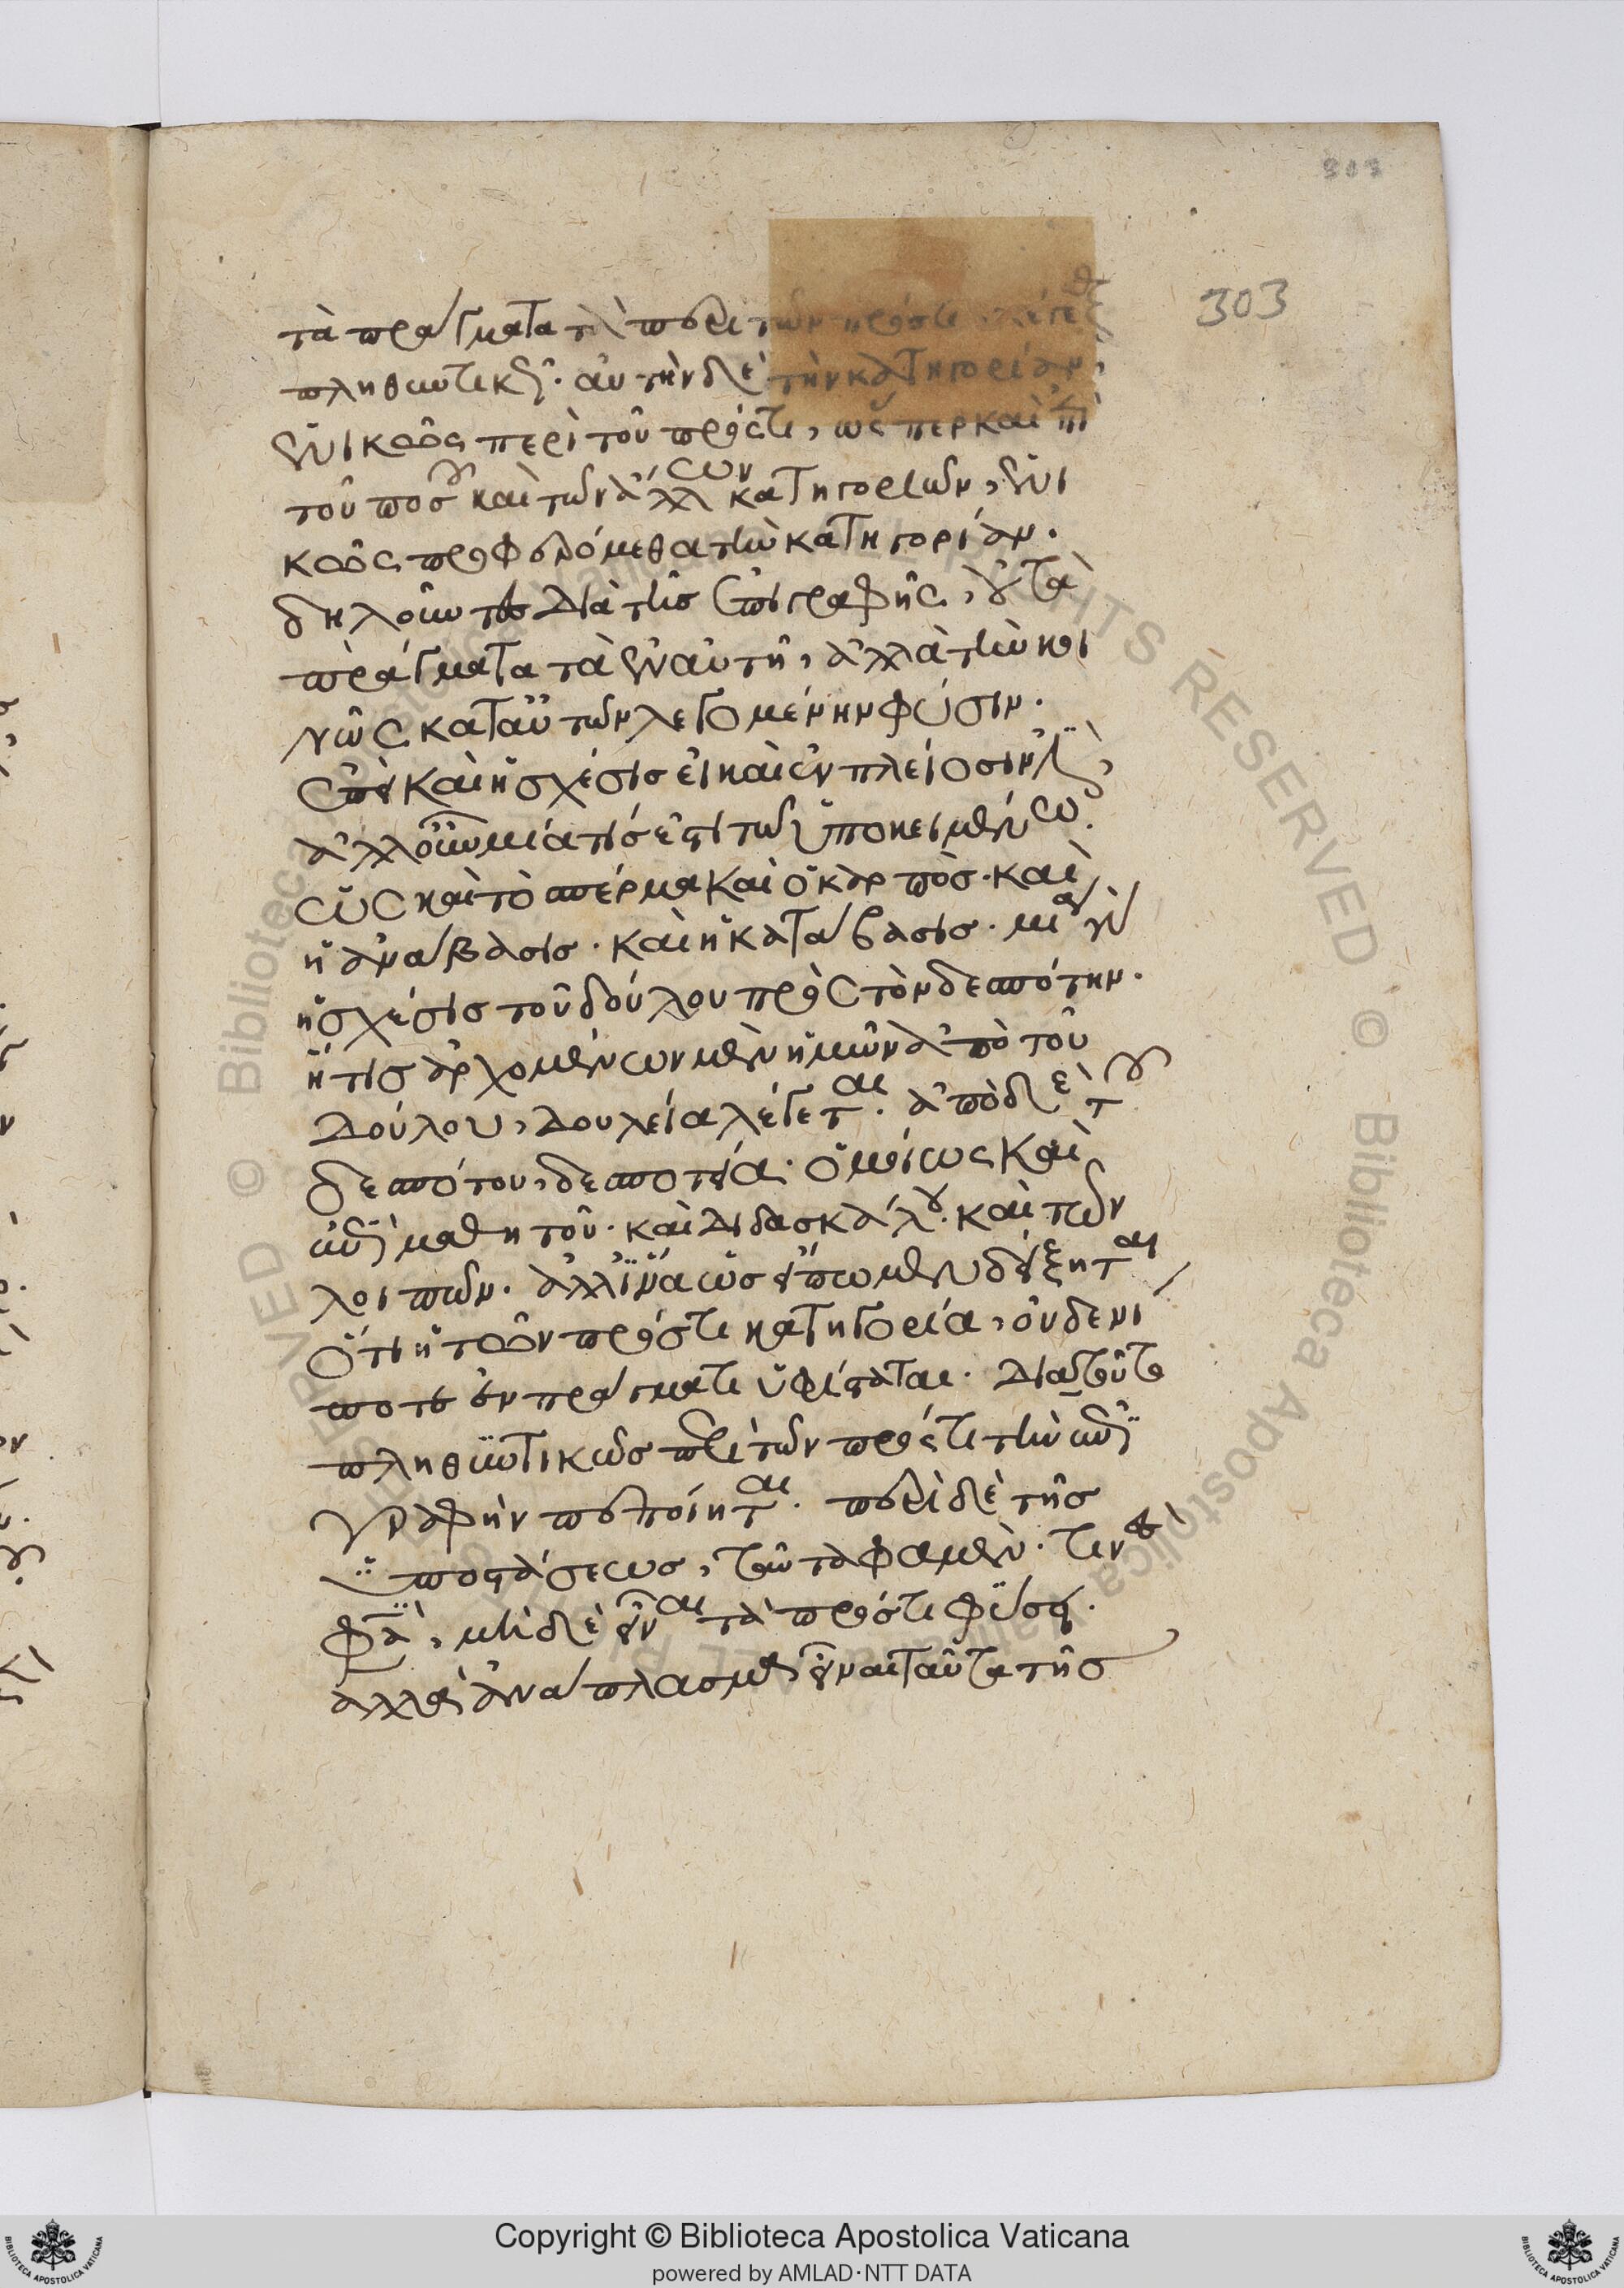 303
303
τὰ πράγματα τὰ περὶ τῶν πρός τι λέγε
πληθυντικῶς. αὐτὴν δὲ τὴν κατηγορίαν,
ἑνικῶς περὶ τοῦ πρός τι, ὥσπερ καὶ ἐπὶ
τοῦ ποσοῦ καὶ τῶν ἄλλων κατηγοριῶν, ἑνι
κῶς προφερόμεθα τὴν κατηγορίαν.
δηλοῦντες διὰ τῆς ἐπιγραφῆς, οὐ τὰ
πράγματα τὰ ἐν αὐτῆ, ἀλλὰ τὴν κοι
νῶς κατ' αὐτῶν λεγομένην φύσιν.
ἐπεὶ καὶ ἡ σχέσις εἰ καὶ ἐν πλείοσιν
ἀλλ' οὖν μία τίς ἐστι τῶ ὑποκειμένω.
ὡς καὶ τὸ σπέρμα καὶ ὁ καρπός. καὶ
ἡ ἀνάβασις. καὶ ἡ κατάβασις. μία γὰρ
ἡ σχέσις τοῦ δούλου πρὸς τὸν δεσπότην.
ἥτις ἀρχομένων μὲν ἡμῶν ἀπὸ τοῦ
δούλου, δουλεία λέγεται. ἀπὸ δὲ τοῦ
δεσπότου, δεσποτεία. ὁμοίως καὶ
ἐπὶ μαθητοῦ. καὶ διδασκάλου. καὶ τῶν
λοιπῶν. ἀλλ' ἵνα ὡς εἴπωμεν δείξηται
ὅτι ἡ τῶν πρός τι κατηγορία, οὐδενί
ποτε ἐν πράγματι ὑφίσταται. διὰ τοῦτο
πληθυντικῶς περὶ τῶν πρός τι τὴν ἐπι
γραφὴν πεποίηται. περὶ δὲ τῆς
ὑποστάσεως, ταῦτα φαμέν. τινὲς
φασὶ, μηδὲ εἶναι τὰ πρός τι φύσει.
ἀλλὰ ἀνάπλασμα εἶναι ταῦτα τῆς
Copyright © Biblioteca Apostolica Vaticana
powered by AMLAD·NTT DATA